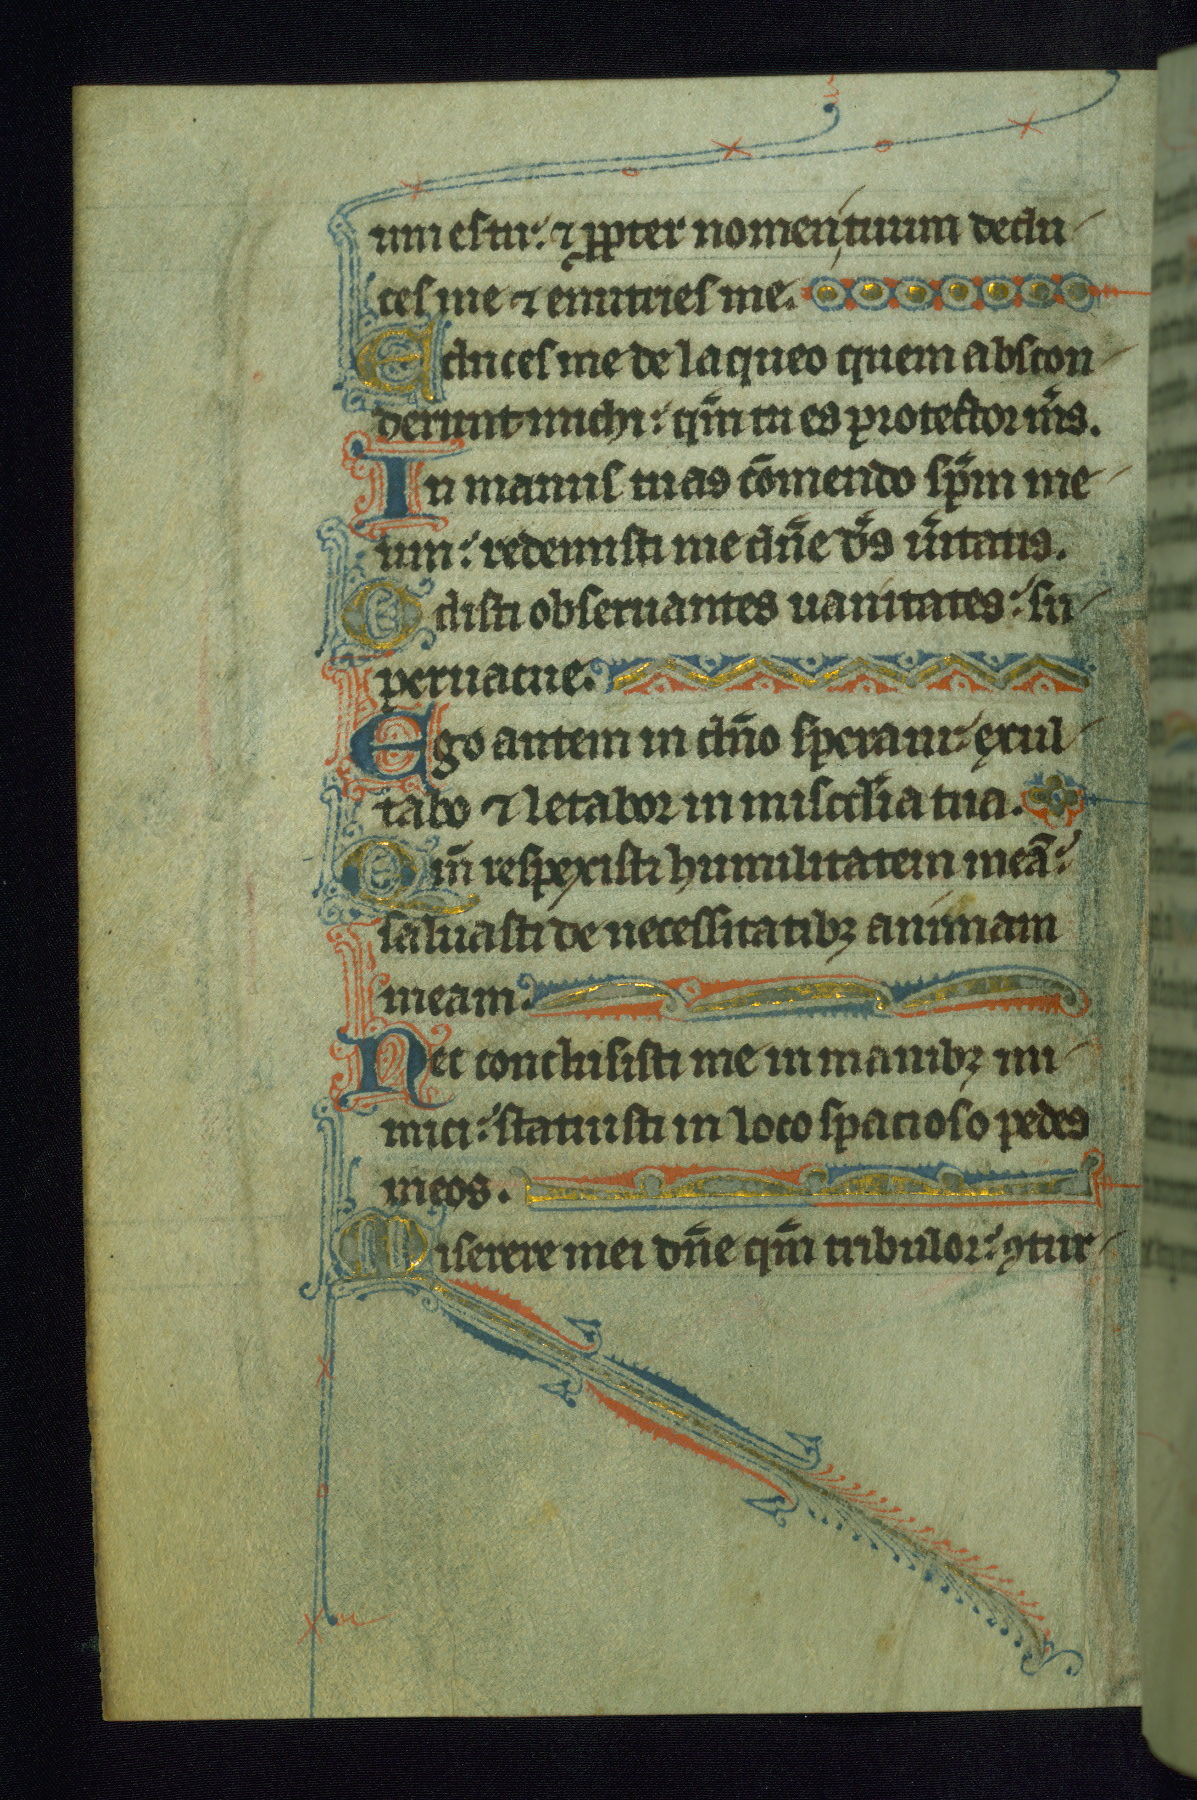 um es tu: ⁊ ꝓpter nomen tuum dedu
ces me ⁊ enutries me.
Educes me de laqueo quem abscon
derunt michi: qm̄ tu es protector m̄s.
In manus tuas cōmendo sp̄m me
um: redemisti me dn̄e d̄s ūitatis.
Odisti obseruantes uanitates: su
peruacue.
Ego autem in dn̄o speraui: exul
tabo ⁊ letabor in miscd̄ia tua.
Qm̄ respexisti humilitatem meā:
saluasti de necessitatibꝫ animam
meam.
Nec conclusisti me in manibꝫ ini
mici: statuisti in loco spacioso pedes
meos.
Miserere mei dn̄e qm̄ tribulor: ꝯtur